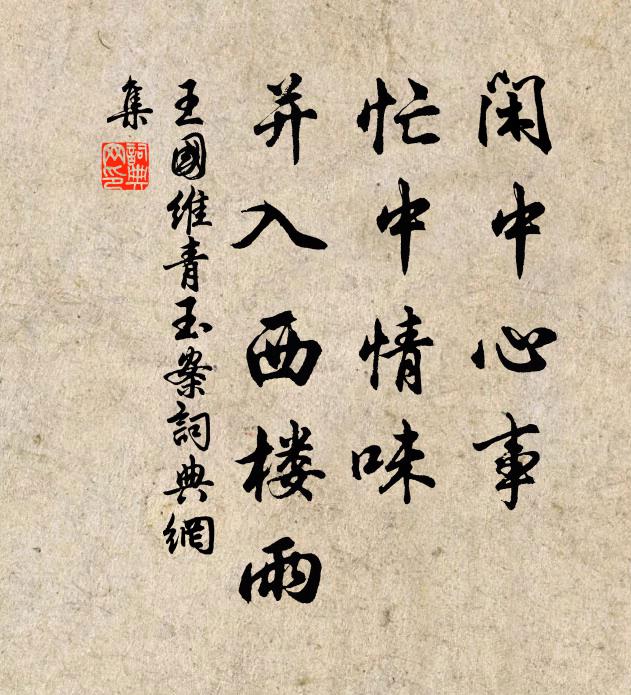 闲中心事
忙中情味
并入西楼雨
王國維青玉案詞典網
集
詞典
网印